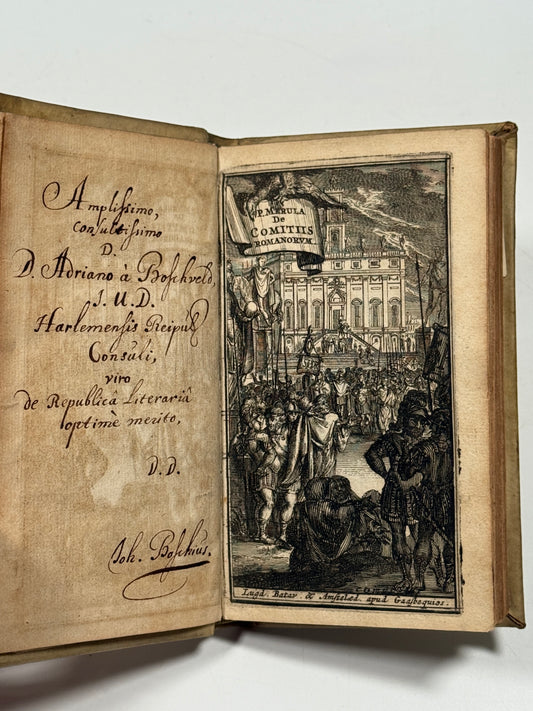 Amplissimo,
Consultissimo
D.
D. Adriano à Boschveld,
J. U. D.
Harlemensis Reipub
Consuli,
viro
de Republica Literariâ
optimè merito,
D. D.
Joh. Boschius.
P. MERULA
De
COMITIIS
ROMANORVM.
Lugd. Batav. & Amstelæd. apud Gaasbequios.